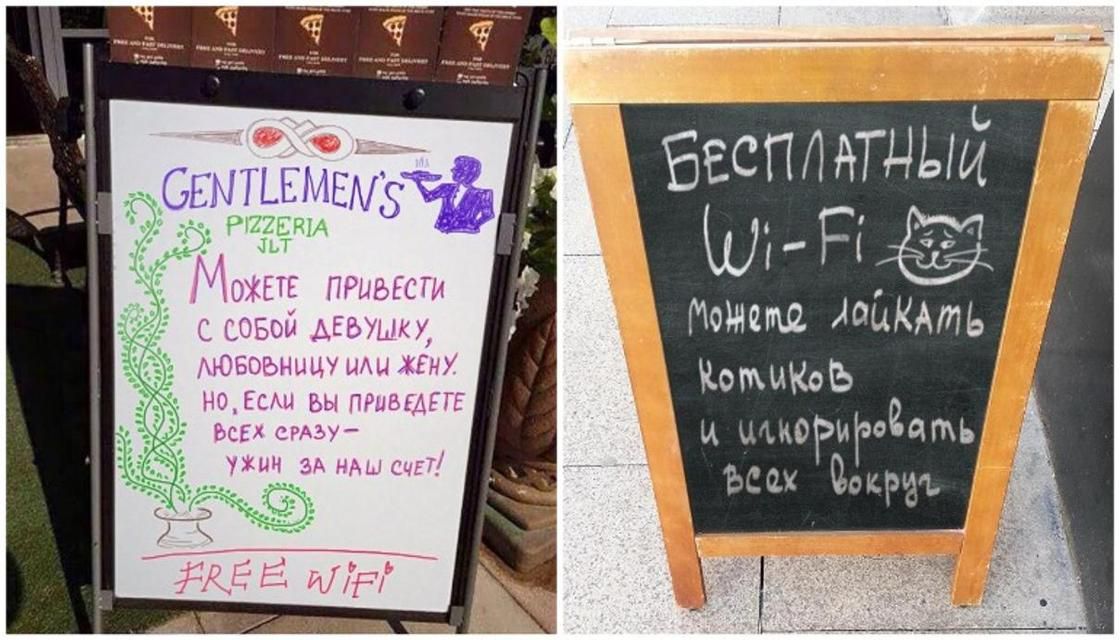 FOR
FREE AND FAST DELIVERY
FOR
FREE AND FAST DELIVERY
FOR
FREE AND FAST DELIVERY
FOR
FREE AND FAST DELIVERY
FOR
FREE AND FAST DELIVERY
GENTLEMEN'S
PIZZERIA
JLT
МОЖЕТЕ ПРИВЕСТИ
С СОБОЙ ДЕВУШКУ,
ЛЮБОВНИЦУ ИЛИ ЖЕНУ.
НО, ЕСЛИ ВЫ ПРИВЕДЕТЕ
ВСЕХ СРАЗУ —
УЖИН ЗА НАШ СЧЕТ!
FREE WiFi
БЕСПЛАТНЫЙ
Wi-Fi
можете лайкать
котиков
и игнорировать
всех вокруг